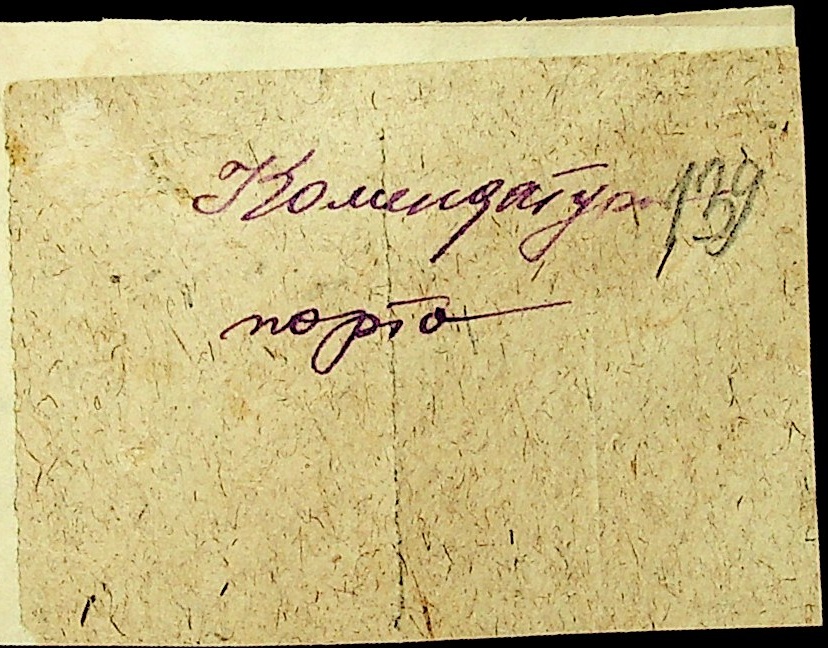 Комендатура 139
порта